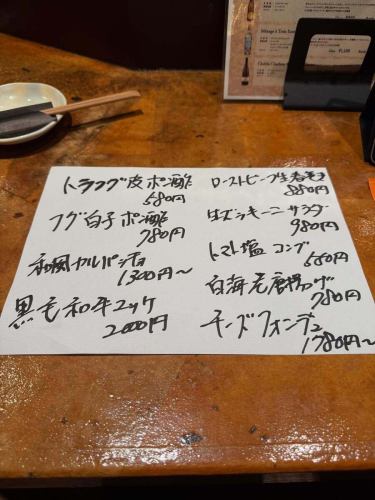 トラフグ皮ポン酢
580円
フグ白子ポン酢
780円
和風カルパッチョ
1300円〜
黒毛和牛ユッケ
2000円
ローストビーフ生春巻き
880円
生ズッキーニサラダ
980円
トマト塩コンブ
580円
白海老唐揚げ
780円
チーズフォンデュ
1780円〜